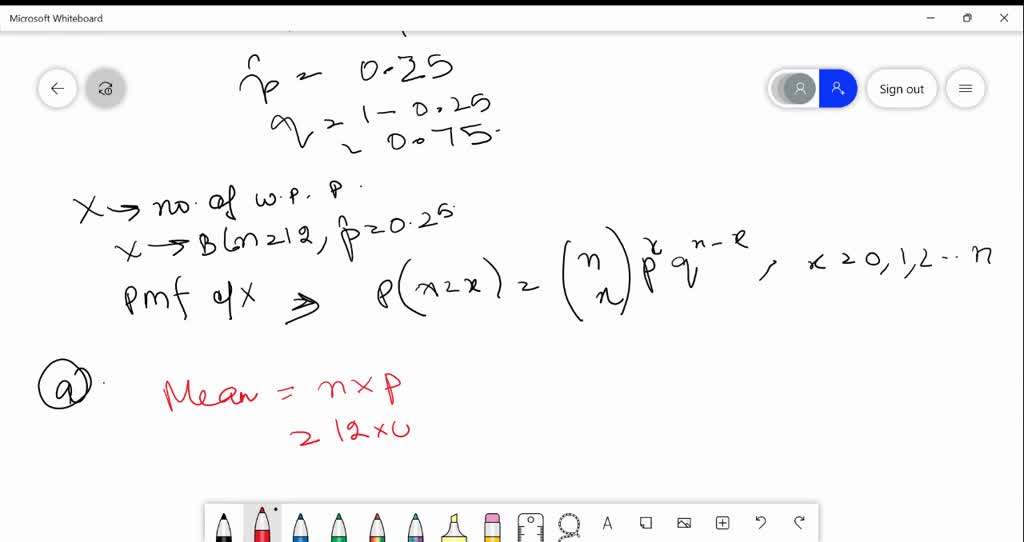 Microsoft Whiteboard
Sign out
p̂ = 0.25
q = 1 - 0.25
= 0.75
X → no. of w.p. p.
X → B(n=12, p̂=0.25
pmf of X ⇒ P(x=x) = (n x) p^x q^n-x, x = 0,1,2...n
a
Mean = n×p
= 12×0
A